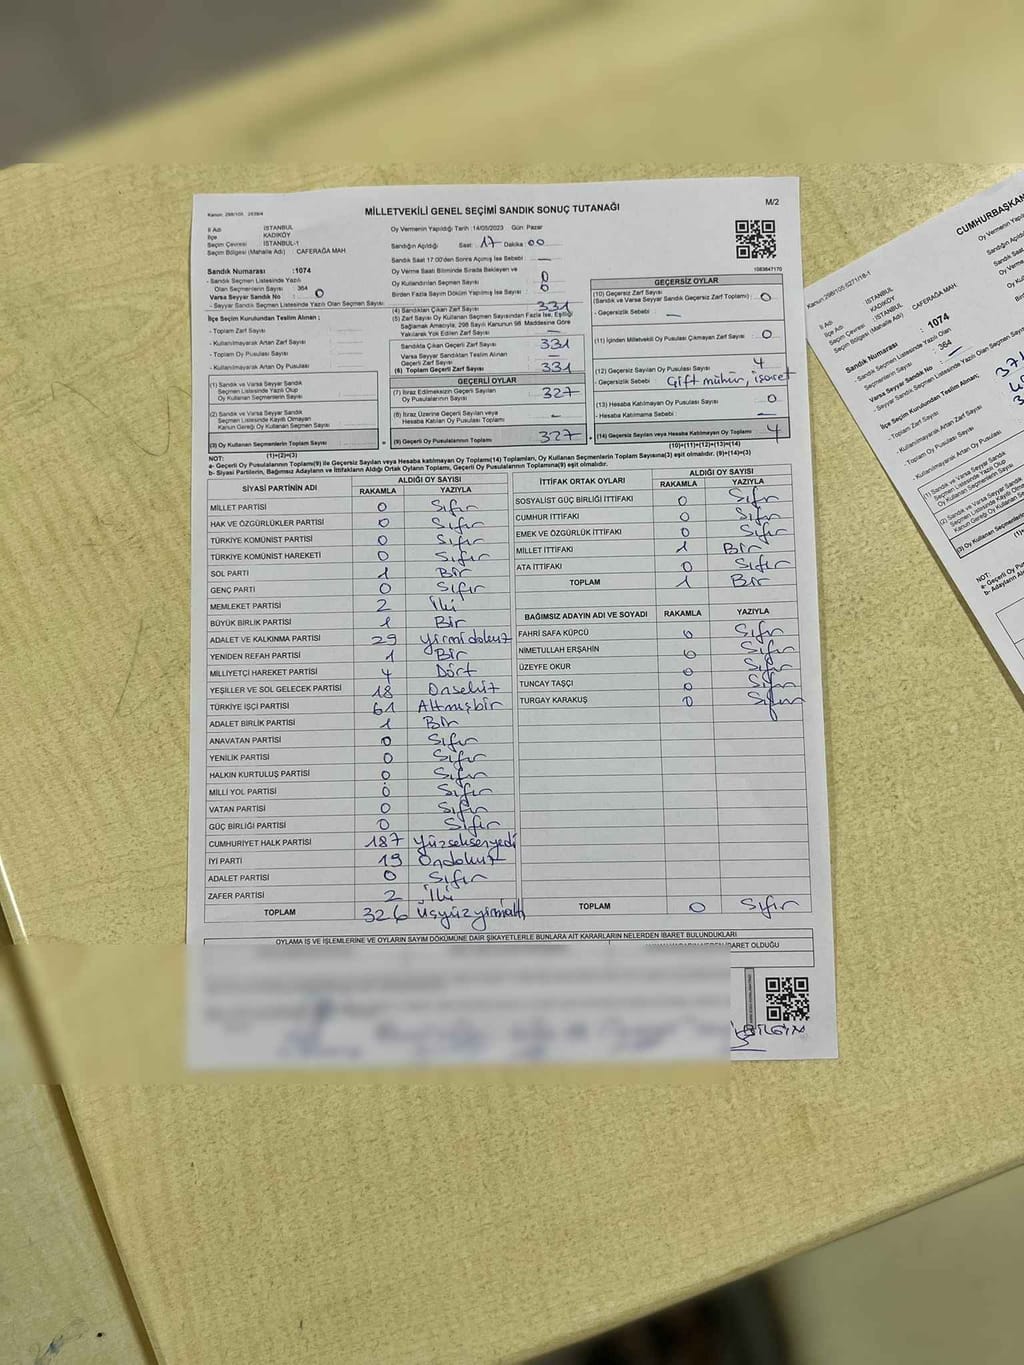 Kanun: 298/105 2839/4
MİLLETVEKİLİ GENEL SEÇİMİ SANDIK SONUÇ TUTANAĞI
M/2
İl Adı : İSTANBUL
İlçe : KADIKÖY
Seçim Çevresi : İSTANBUL-1
Seçim Bölgesi (Mahalle Adı) : CAFERAĞA MAH.
Sandık Numarası :1074
- Sandık Seçmen Listesinde Yazılı
Olan Seçmenlerin Sayısı : 364
Varsa Seyyar Sandık No : 0
- Seyyar Sandık Seçmen Listesinde Yazılı Olan Seçmen Sayısı
İlçe Seçim Kurulundan Teslim Alınan ;
- Toplam Zarf Sayısı
- Kullanılmayarak Artan Zarf Sayısı
- Toplam Oy Pusulası Sayısı
- Kullanılmayarak Artan Oy Pusulası
(1) Sandık ve Varsa Seyyar Sandık
Seçmen Listesinde Yazılı Olup
Oy Kullanan Seçmenlerin Sayısı
(2) Sandık ve Varsa Seyyar Sandık
Seçmen Listesinde Kayıtlı Olmayan
Kanun Gereği Oy Kullanan Seçmen Sayısı
(3) Oy Kullanan Seçmenlerin Toplam Sayısı
(1)+(2)=(3)
Oy Vermenin Yapıldığı Tarih :14/05/2023 Gün: Pazar
Sandığın Açıldığı Saat: 17 Dakika: 00
Sandık Saat 17:00'den Sonra Açılmış İse Sebebi : —
Oy Verme Saati Bitiminde Sırada Bekleyen ve
Oy Kullandırılan Seçmen Sayısı : 0
Birden Fazla Sayım Döküm Yapılmış İse Sayısı : 0
(4) Sandıktan Çıkan Zarf Sayısı 331
(5) Zarf Sayısı Oy Kullanan Seçmen Sayısından Fazla İse, Eşitliği
Sağlamak Amacıyla, 298 Sayılı Kanunun 98. Maddesine Göre
Yakılarak Yok Edilen Zarf Sayısı —
Sandıkta Çıkan Geçerli Zarf Sayısı 331
Varsa Seyyar Sandıktan Teslim Alınan
Geçerli Zarf Sayısı —
(6) Toplam Geçerli Zarf Sayısı 331
GEÇERLİ OYLAR
(7) İtiraz Edilmeksizin Geçerli Sayılan
Oy Pusulalarının Sayısı 327
(8) İtiraz Üzerine Geçerli Sayılan veya
Hesaba Katılan Oy Pusulaları Toplamı —
(9) Geçerli Oy Pusulalarının Toplamı 327
1083847170
GEÇERSİZ OYLAR
(10) Geçersiz Zarf Sayısı
(Sandık ve Varsa Seyyar Sandık Geçersiz Zarf Toplamı) : 0
- Geçersizlik Sebebi : —
(11) İçinden Milletvekili Oy Pusulası Çıkmayan Zarf Sayısı : 0
(12) Geçersiz Sayılan Oy Pusulası Sayısı : 4
- Geçersizlik Sebebi : Çift mühür, işaret
(13) Hesaba Katılmayan Oy Pusulası Sayısı : 0
- Hesaba Katılmama Sebebi : —
(14) Geçersiz Sayılan veya Hesaba Katılmayan Oy Toplamı : 4
(10)+(11)+(12)+(13)=(14)
NOT:
a- Geçerli Oy Pusulalarının Toplamı(9) ile Geçersiz Sayılan veya Hesaba Katılmayan Oy Toplamı(14) Toplamları, Oy Kullanan Seçmenlerin Toplam Sayısına(3) eşit olmalıdır. (9)+(14)=(3)
b- Siyasi Partilerin, Bağımsız Adayların ve İttifakların Aldığı Ortak Oyların Toplamı, Geçerli Oy Pusulalarının Toplamına(9) eşit olmalıdır.
SİYASİ PARTİNİN ADI ALDIĞI OY SAYISI
RAKAMLA YAZIYLA
MİLLET PARTİSİ 0 Sıfır
HAK VE ÖZGÜRLÜKLER PARTİSİ 0 Sıfır
TÜRKİYE KOMÜNİST PARTİSİ 0 Sıfır
TÜRKİYE KOMÜNİST HAREKETİ 0 Sıfır
SOL PARTİ 1 Bir
GENÇ PARTİ 0 Sıfır
MEMLEKET PARTİSİ 2 İki
BÜYÜK BİRLİK PARTİSİ 1 Bir
ADALET VE KALKINMA PARTİSİ 29 Yirmidokuz
YENİDEN REFAH PARTİSİ 1 Bir
MİLLİYETÇİ HAREKET PARTİSİ 4 Dört
YEŞİLLER VE SOL GELECEK PARTİSİ 18 Onsekiz
TÜRKİYE İŞÇİ PARTİSİ 61 Altmışbir
ADALET BİRLİK PARTİSİ 1 Bir
ANAVATAN PARTİSİ 0 Sıfır
YENİLİK PARTİSİ 0 Sıfır
HALKIN KURTULUŞ PARTİSİ 0 Sıfır
MİLLİ YOL PARTİSİ 0 Sıfır
VATAN PARTİSİ 0 Sıfır
GÜÇ BİRLİĞİ PARTİSİ 0 Sıfır
CUMHURİYET HALK PARTİSİ 187 Yüzseksenyedi
İYİ PARTİ 19 Ondokuz
ADALET PARTİSİ 0 Sıfır
ZAFER PARTİSİ 2 İki
TOPLAM 326 Üçyüzyirmialtı
İTTİFAK ORTAK OYLARI ALDIĞI OY SAYISI
RAKAMLA YAZIYLA
SOSYALİST GÜÇ BİRLİĞİ İTTİFAKI 0 Sıfır
CUMHUR İTTİFAKI 0 Sıfır
EMEK VE ÖZGÜRLÜK İTTİFAKI 0 Sıfır
MİLLET İTTİFAKI 1 Bir
ATA İTTİFAKI 0 Sıfır
TOPLAM 1 Bir
BAĞIMSIZ ADAYIN ADI VE SOYADI RAKAMLA YAZIYLA
FAHRİ SAFA KÜPCÜ 0 Sıfır
NİMETULLAH ERŞAHİN 0 Sıfır
ÜZEYFE OKUR 0 Sıfır
TUNCAY TAŞÇI 0 Sıfır
TURGAY KARAKUŞ 0 Sıfır
TOPLAM 0 Sıfır
OYLAMA İŞ VE İŞLEMLERİNE VE OYLARIN SAYIM DÖKÜMÜNE DAİR ŞİKAYETLERLE BUNLARA AİT KARARLARIN NELERDEN İBARET BULUNDUKLARI
BİLGİN
CUMHURBAŞKAN
Kanun:298/105 6271/18-1
Oy Vermenin Yapıl
Sandığın Açıldı
İl Adı : İSTANBUL
İlçe : KADIKÖY
Seçim Çevresi : İSTANBUL
Seçim Bölgesi (Mahalle Adı) : CAFERAĞA MAH.
Sandık Numarası : 1074
- Sandık Seçmen Listesinde Yazılı Olan
Seçmenlerin Sayısı : 364
Varsa Seyyar Sandık No —
- Seyyar Sandık Seçmen Listesinde Yazılı Olan Seçmen Sayısı
İlçe Seçim Kurulundan Teslim Alınan;
- Toplam Zarf Sayısı
- Kullanılmayarak Artan Zarf Sayısı
- Toplam Oy Pusulası Sayısı
- Kullanılmayarak Artan Oy Pusulası
(1) Sandık ve Varsa Seyyar Sandık
Seçmen Listesinde Yazılı Olup
Oy Kullanan Seçmenlerin Sayısı
(2) Sandık ve Varsa Seyyar Sandık
Seçmen Listesinde Kayıtlı
Kanun Gereği Oy Kullanan Seçmen
(3) Oy Kullanan Seçmenlerin
NOT:
a- Geçerli Oy Pu
b- Adayların Al